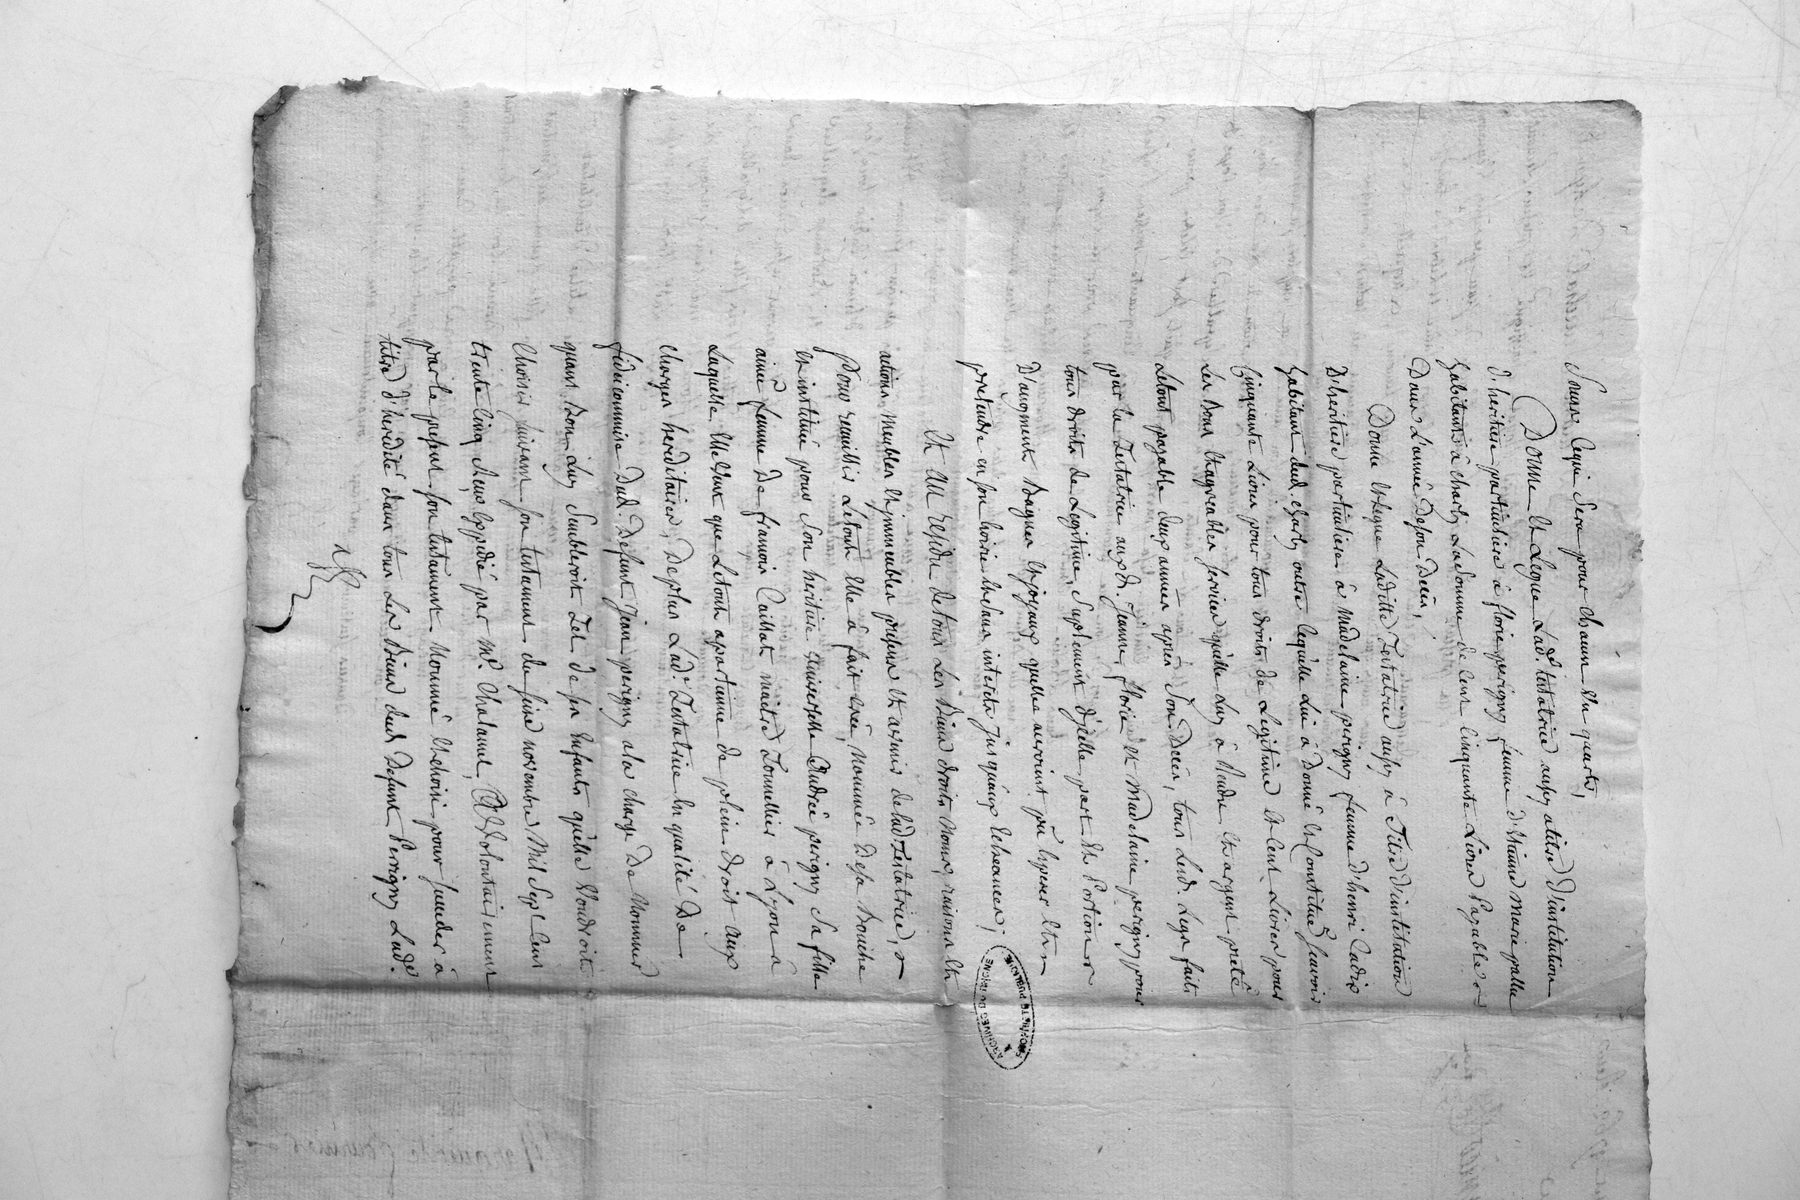 Sous ce qui Sera pour chacun un quart;
Donne et Legue Lad.e testatrice aussy atitre D'institution
d'heritiere particuliere à florie perigny femme d'etienne Marie pallu
habitants à Charly La somme de Cent Cinquante Livres Payable
Dans L'année De son Decès,
Donne et Legue Laditte Testatrice aussy à Titre d'institution
D'heritiere particuliere à Madelaine perigny femme d'henri Cadis
habitant dud. Charly outre ce qu'elle Lui à Donné et Constitué Scavoir
Cinquante Livres pour tous droits de Legitime et Cent Livres pour
Les Bons et agreables services qu'elle Luy à Rendu et argent preté
Le tout payable deux années après Son Decès, tous Lesd. Legs faits
par la Testatrice auxd. Jeanne, florie et Madelaine perigny pour
tous droits de Legitime, Suplement d'jcelle part et Portion
D'augment Bagues et joyaux qu'elle auroient pû Esperer et
pretendre en son hoirie et dans interets jusqu'aux Echeances;
Et au Residu de tous Les Biens droits Noms, raisons et
actions Meubles et jmmeubles presens et avenir de lad. Testatrice,
Pour recueillir Le tout Elle à fait, créé, Nommée De sa Bouche
et institué pour Son heritiere universelle Andrée perigny Sa fille
ainée femme De francois Caillat maitre Tonnellier à Lyon à
Laquelle Elle Veut que Le tout apartienne de plein droit aux
charges hereditaires, De plus Lad.e Testatrice En qualité De
fideicommise Dud. Defunt Jean perigny a la charge De Nommer
quant Bon Luy Sembleroit Tel de ses Enfants qu'elle Voudroit
Choisir suivant son testament du seize novembre Mil Sept Cent
trente Cinq Receu Expedié par M.e Chatanne, A Volontairement
par le present son testament Nommé et choisi pour succeder à
titre d'heredité dans tous Les Biens dud. Defunt Perrigny Lad.e
ARCHIVES DU RHONE
PROPRIETE PUBLIQUE